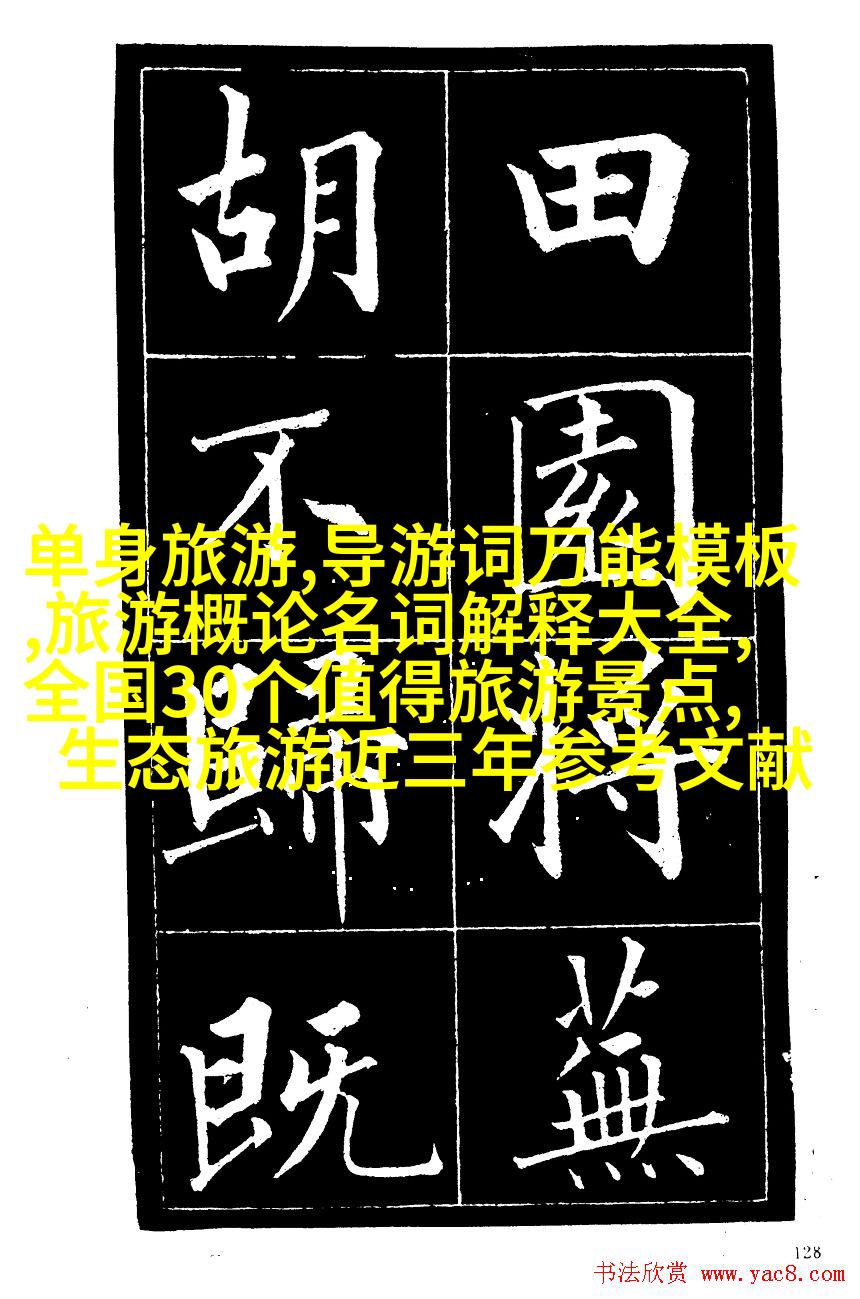 田園将蕪
胡不歸既
单身旅游,导游词万能模板
,旅游概论名词解释大全,
全国30个值得旅游景点,
生态旅游近三年参考文献
128
书法欣赏 www.yac8.com